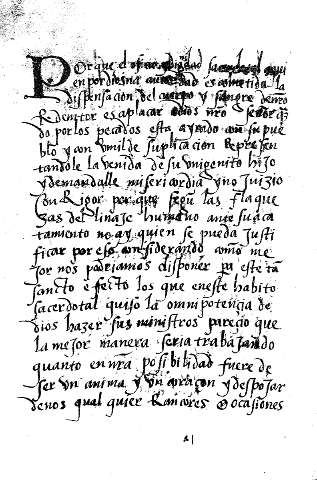 Por que el oficio y dignidad sacerdotal aqui
en por diuina autoridad es cometida la
dispensacion del cuerpo y sangre de nro
Redentor es aplacar a dios nro señor qdo
do por los pecados esta ayrado con su pue
blo y con vmilde suplicacion Represen
tandole la venida de su vnigenito hijo
y demandalle misericordia y no Juizio
con Rigor por que segu las flaque
zas del linaje humano ante su aca
tamiento no ay quien se pueda justi
ficar por eso considerando como me
jor nos podriamos disponer pa este tā
sancto efecto los que en este habito
sacerdotal quiso la omnipotencia de
dios hazer sus ministros parecio que
la mejor manera seria trabajando
quanto en nra posibilidad fuere de
ser vn anima y vn coraçon y despojar
denos qual quier Rancores o ocasiones